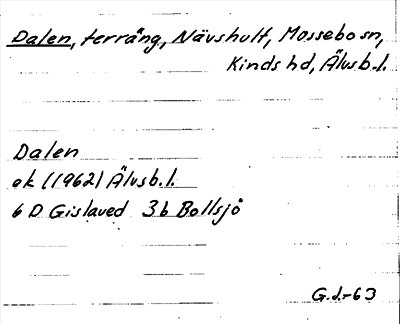 Dalen, terräng, Nävshult, Mossebo sn,
Kinds hd, Älvsb.l.
Dalen
ek (1962) Älvsb.l.
6 D Gislaved 3b Bollsjö
G.J.-63